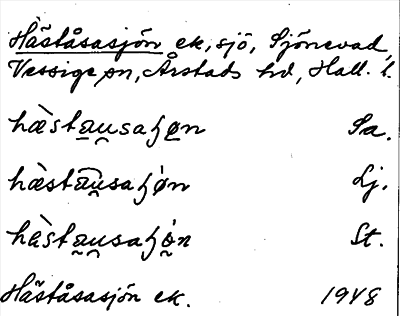 Häståsasjön ek, sjö, Sjönevad,
Vessige sn, Årstads hd, Hall. l.
hæ̀sta̲u̯saɧø̲n Sa.
hæ̀stau̯saɧǿn Lj.
hæ̀sta̰u̯saɧǿ̰n St.
Häståsasjön ek. 1948